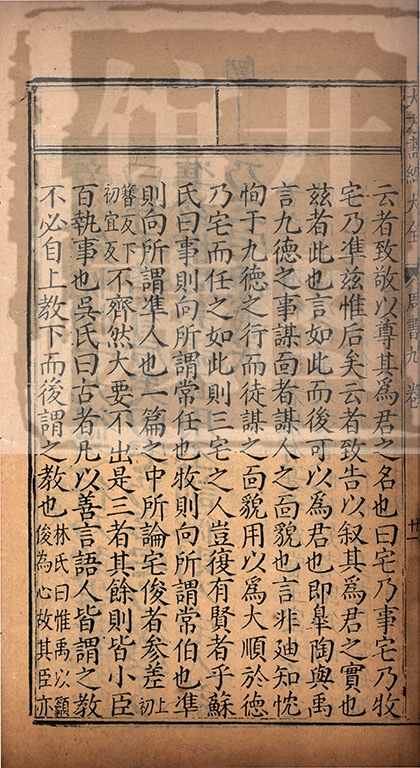 云者致敬以尊其爲君之名也曰宅乃事宅乃牧
宅乃凖兹惟后矣云者致告以叙其爲君之實也
兹者此也言如此而後可以爲君也即臯陶與禹
言九德之事謀靣者謀人之靣貌也言非廸知忱
恂于九德之行而徒謀之靣貌用以爲大順於德
乃宅而任之如此則三宅之人豈復有賢者乎蘇
氏曰事則向所謂常任也牧則向所謂常伯也凖
則向所謂凖人也一篇之中所論宅俊者參差上初
簪反下初宜反不齊然大要不出是三者其餘則皆小臣
百執事也吳氏曰古者凡以善言語人皆謂之教
不必自上教下而後謂之教也林氏曰惟禹以籲俊為心故其臣亦